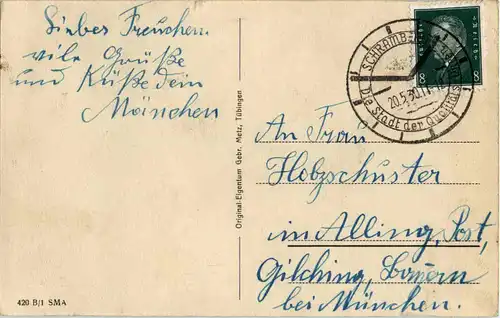 Lieber Freuchen.
vile Grüße
und Küße dein
Mänchen
Original-Eigentum Gebr. Metz, Tübingen
420 B/1 SMA
SCHRAMBERG
20.5.30.11
Die Stadt der Qualitäts
8 8
An Frau
Holzschuster
in Alling, Post,
Gilching, Bayern
bei München.